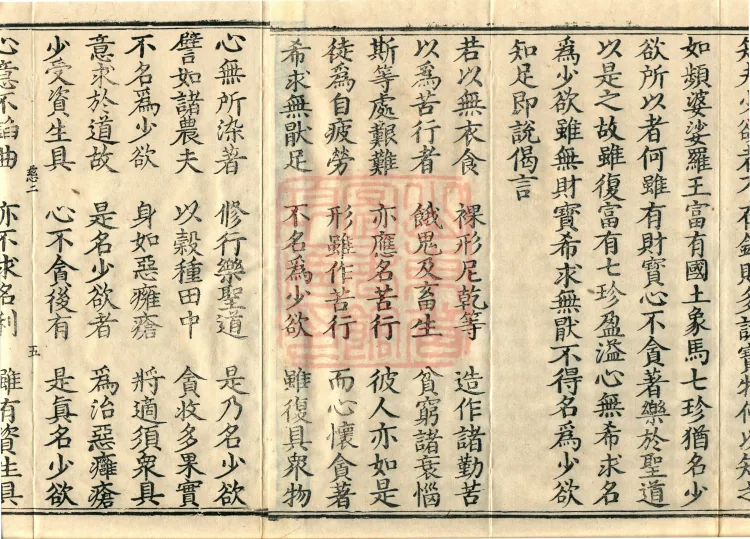 如頻婆娑羅王富有國土象馬七珍猶名少
欲所以者何雖有財寶心不貪著樂於聖道
以是之故雖復富有七珍盈溢心無希求名
為少欲雖無財寶希求無猒不得名為少欲
知足即說偈言
若以無衣食 裸形尼乾等 造作諸勤苦
以為苦行者 餓鬼及畜生 貧窮諸衰惱
斯等處艱難 亦應名苦行 彼人亦如是
徒為自疲勞 形雖作苦行 而心懷貪著
希求無猒足 不名為少欲 雖復具眾物
心無所染著 修行樂聖道 是乃名少欲
譬如諸農夫 以穀種田中 貪收多果實
不名為少欲 身如惡癰瘡 將適須眾具
意求於道故 是名少欲者 為治惡癰瘡
少受資生具 心不貪後有 是真名少欲
慈二 五
心意不諂曲 亦不求名利 雖有資生具